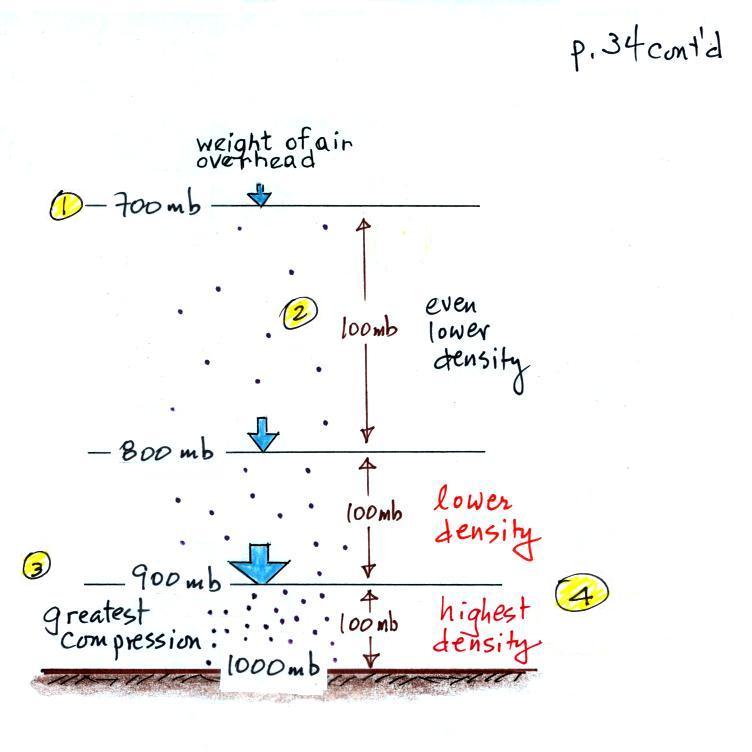 p.34 cont'd
weight of air
overhead
1
700 mb
2
100mb
even
lower
density
800 mb
100mb
lower
density
3
900 mb
4
greatest
compression
100mb
highest
density
1000 mb